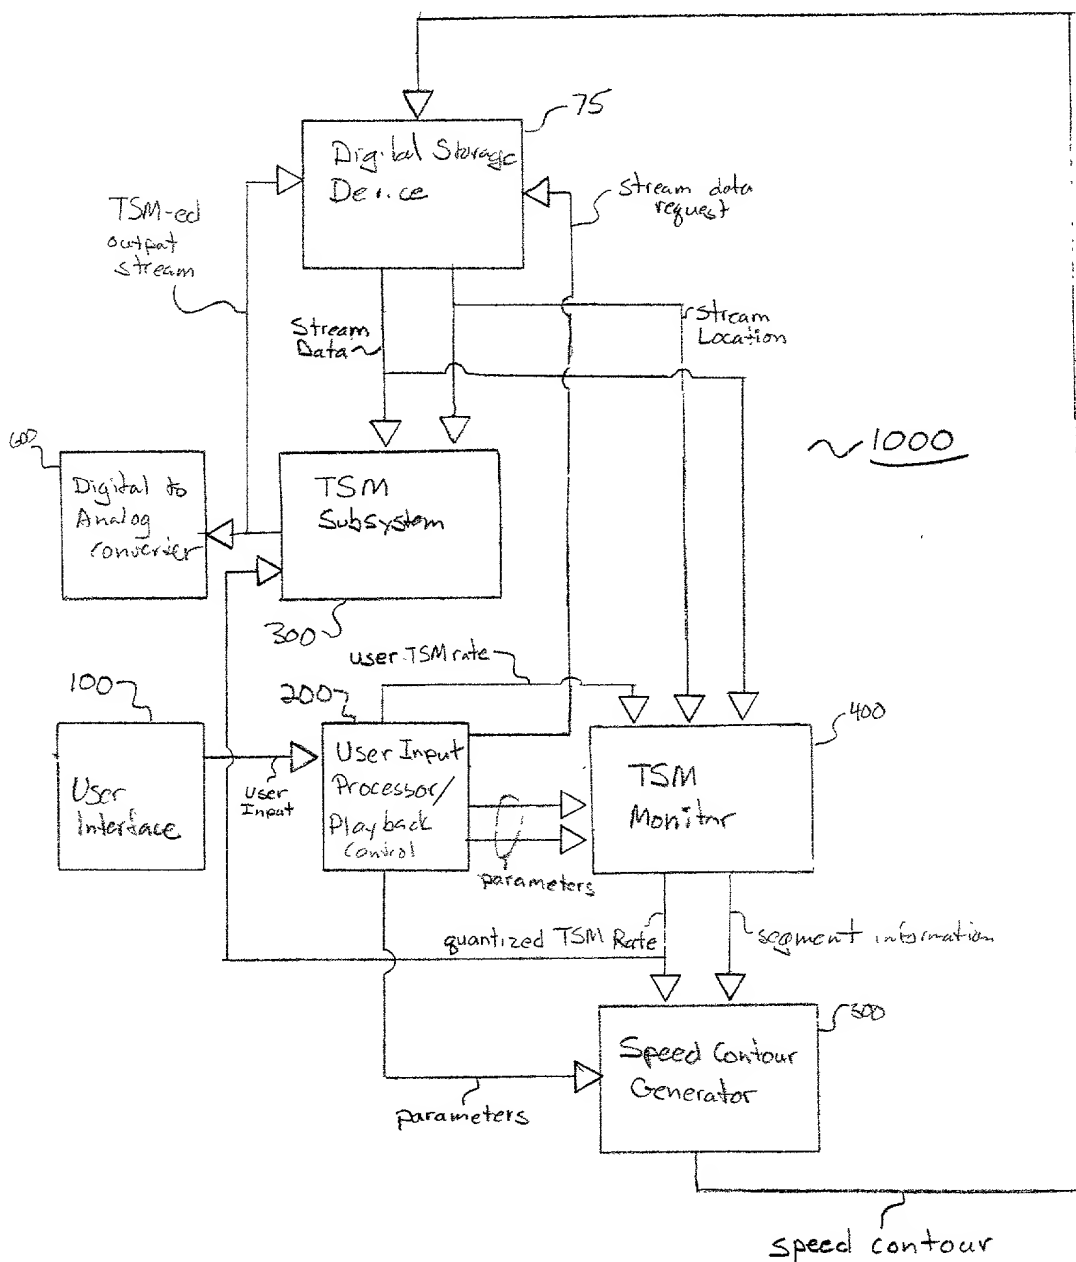 75
Digital Storage
Device
stream data
request
TSM-ed
output
stream
Stream
Data
Stream
Location
1000
600
Digital to
Analog
Converter
TSM
Subsystem
300
user TSM rate
100
200
400
User
Interface
User
Input
User Input
Processor/
Playback
Control
TSM
Monitor
parameters
quantized TSM Rate
segment information
Speed Contour
Generator
parameters
speed contour